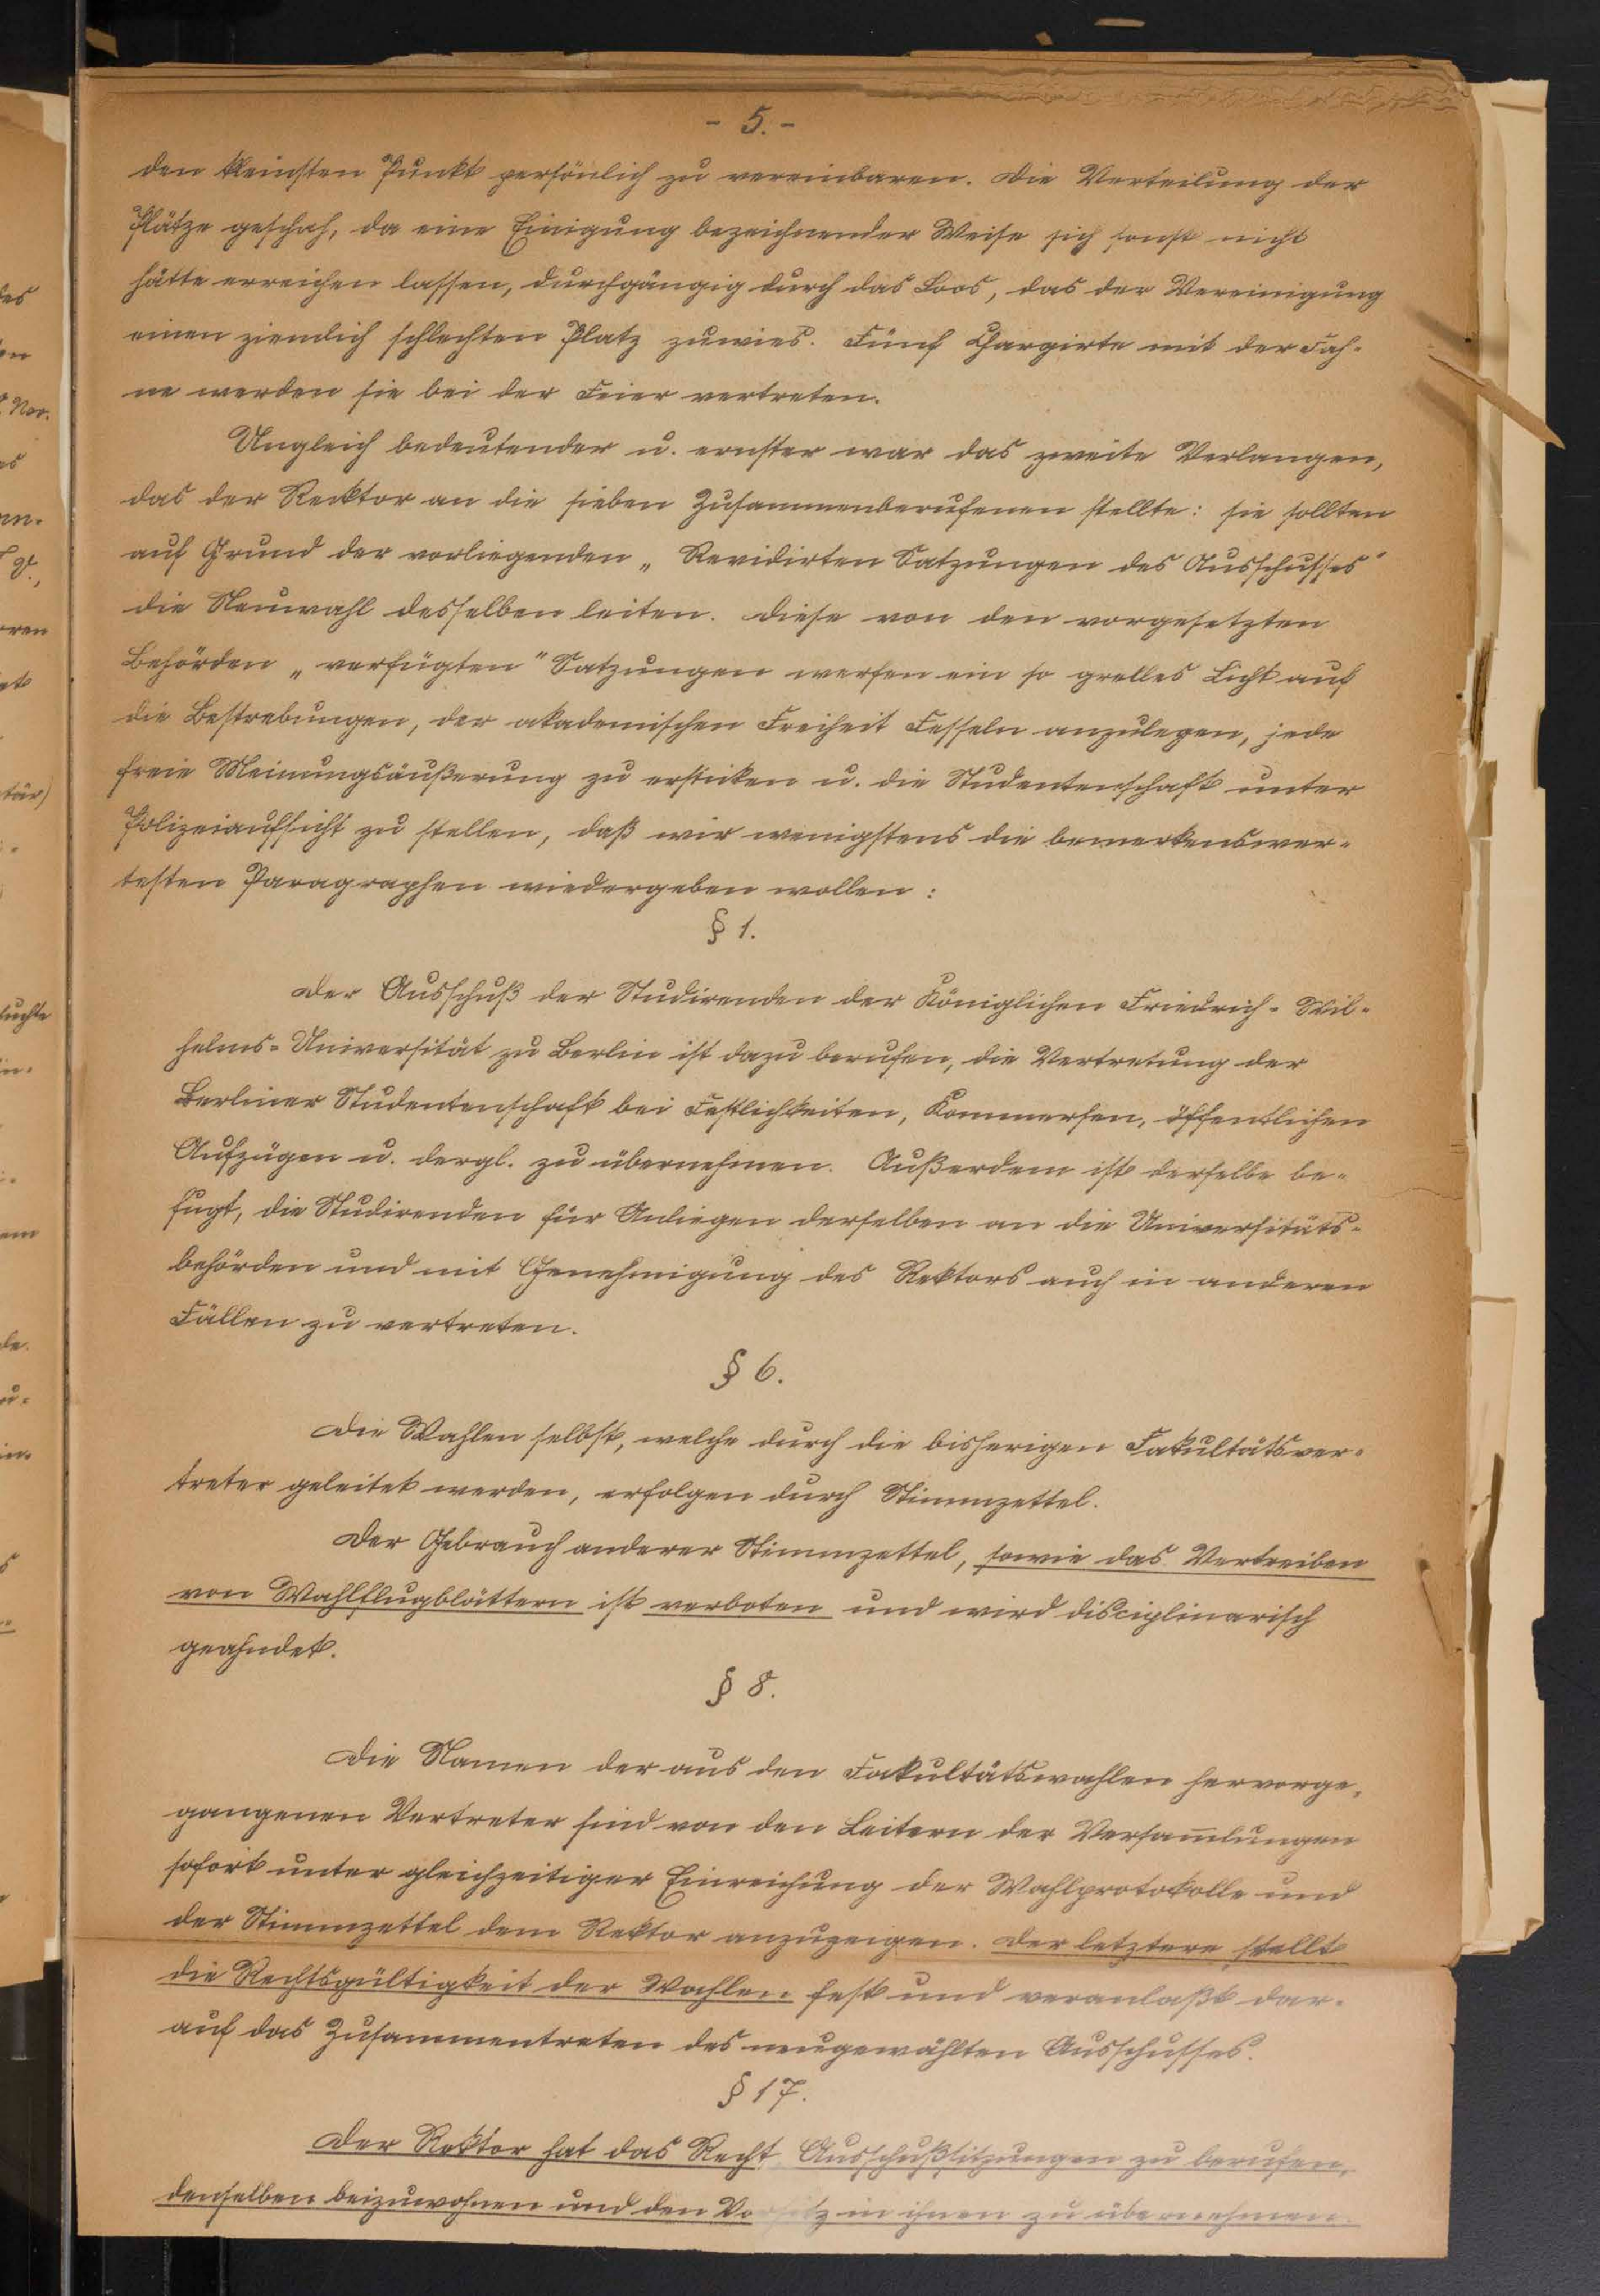 - 5. -
den kleinsten Punkt persönlich zu vereinbaren. Die Verteilung der
Plätze geschah, da eine Einigung bezeichnender Weise sich sonst nicht
hätte erreichen lassen, durchgängig durch das Loos, das der Vereinigung
einen ziemlich schlechten Platz zuwies. Fünf Chargirte mit der Fah-
ne werden sie bei der Feier vertreten.
Ungleich bedeutender u. ernster war das zweite Verlangen,
das der Recktor an die sieben Zusammenberufenen stellte: sie sollten
auf Grund der vorliegenden „Revidirten Satzungen des Ausschusses"
die Neuwahl desselben leiten. Diese von den vorgesetzten
Behörden „verfügten" Satzungen werfen ein so grelles Licht auf
die Bestrebungen, der akademischen Freiheit Fesseln anzulegen, jede
freie Meinungsäußerung zu ersticken u. die Studentenschaft unter
Polizeiaufsicht zu stellen, daß wir wenigstens die bemerkenswer-
testen Paragraphen wiedergeben wollen:
§ 1.
Der Ausschuß der Studirenden der Königlichen Friedrich-Wil-
helms-Universität zu Berlin ist dazu berufen, die Vertretung der
Berliner Studentenschaft bei Festlichkeiten, Kommersen, öffentlichen
Aufzügen u. dergl. zu übernehmen. Außerdem ist derselbe be-
fugt, die Studirenden für Anliegen derselben an die Universitäts-
behörden und mit Genehmigung des Rektors auch in anderen
Fällen zu vertreten.
§ 6.
Die Wahlen selbst, welche durch die bisherigen Fakultätsver-
treter geleitet werden, erfolgen durch Stimmzettel.
Der Gebrauch anderer Stimmzettel, sowie das Vertreiben
von Wahlflugblättern ist verboten und wird disciplinarisch
geahndet.
§ 8.
Die Namen der aus den Fakultätswahlen hervorge-
gangenen Vertreter sind von den Leitern der Versam̅lungen
sofort unter gleichzeitiger Einreichung der Wahlprotokolle und
der Stimmzettel dem Rektor anzuzeigen. Der letztere stellt
die Rechtsgültigkeit der Wahlen fest und veranlaßt dar-
auf das Zusammentreten des neugewählten Ausschusses.
§ 17.
Der Rektor hat das Recht Ausschußsitzungen zu berufen,
denselben beizuwohnen und den Vorsitz in ihnen zu übernehmen.